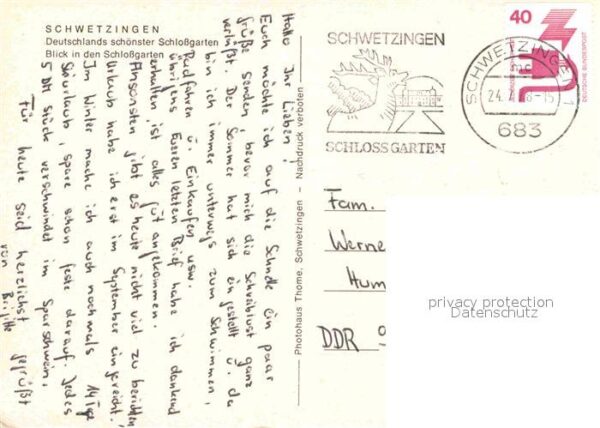 SCHWETZINGEN
Deutschlands schönster Schloßgarten
Blick in den Schloßgarten
Hallo Ihr Lieben!
Euch möchte ich auf die Schnelle ein paar
Grüße senden, bevor mich die Schreiblust ganz
verläßt. Der Sommer hat sich eingestellt u. da
bin ich immer unterwegs zum Schwimmen,
Radfahren u. Einkaufen usw.
Übrigens Euren letzten Brief habe ich dankend
erhalten, ist alles gut angekommen.
Ansonsten gibt es heute nicht viel zu berichten,
Urlaub habe ich erst im September eingereicht.
Im Winter mache ich auch nochmals 14 Tage
Skiurlaub, spare schon feste darauf. Jedes
5 DM Stück verschwindet im Sparschwein.
Für heute seid herzlichst gegrüßt
von Brigitte
Photohaus Thome, Schwetzingen – Nachdruck verboten
SCHWETZINGEN
SCHLOSSGARTEN
SCHWETZINGEN 1
24.
-15
683
40
DEUTSCHE BUNDESPOST
Fam.
Werne
Hum
DDR
privacy protection
Datenschutz